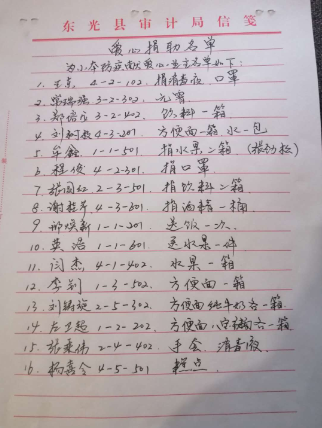 东光县审计局信笺
爱心捐助名单
为小区防疫献爱心业主名单如下:
1. 王 4-2-102. 捐消毒液 口罩
2. 3-2-302.
3. 郑 3-2-402. 饮料一箱
4. 刘 -3-201. 方便面一箱 水一包
5. 牟鑫 1-1-501 捐水果二箱
6. 程俊 4-2-301. 捐口罩
7. 张国红 2-3-501 捐饮料二箱
8. 谢桂芹 4-3-601 捐酒精一桶
9. 邢焕新 1-1-201 送饭一次
10. 英浩 1-1-601 送水果一件
11. 闫杰 4-1-402. 水果一箱
12. 李剑 1-3-502. 方便面一箱
13. 刘 2-5-302. 方便面纯牛奶各一箱
14. 左卫超 1-2-202. 方便面八宝粥各一箱
15. 张秉伟 2-4-402 手套 消毒液
16. 杨喜全 4-5-501 糕点